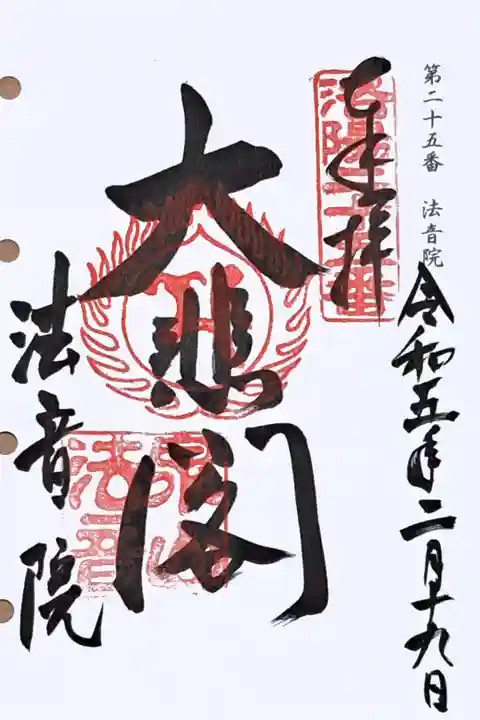 第二十五番 法音院
令和五年二月十九日
奉拝
大悲閣
法音院